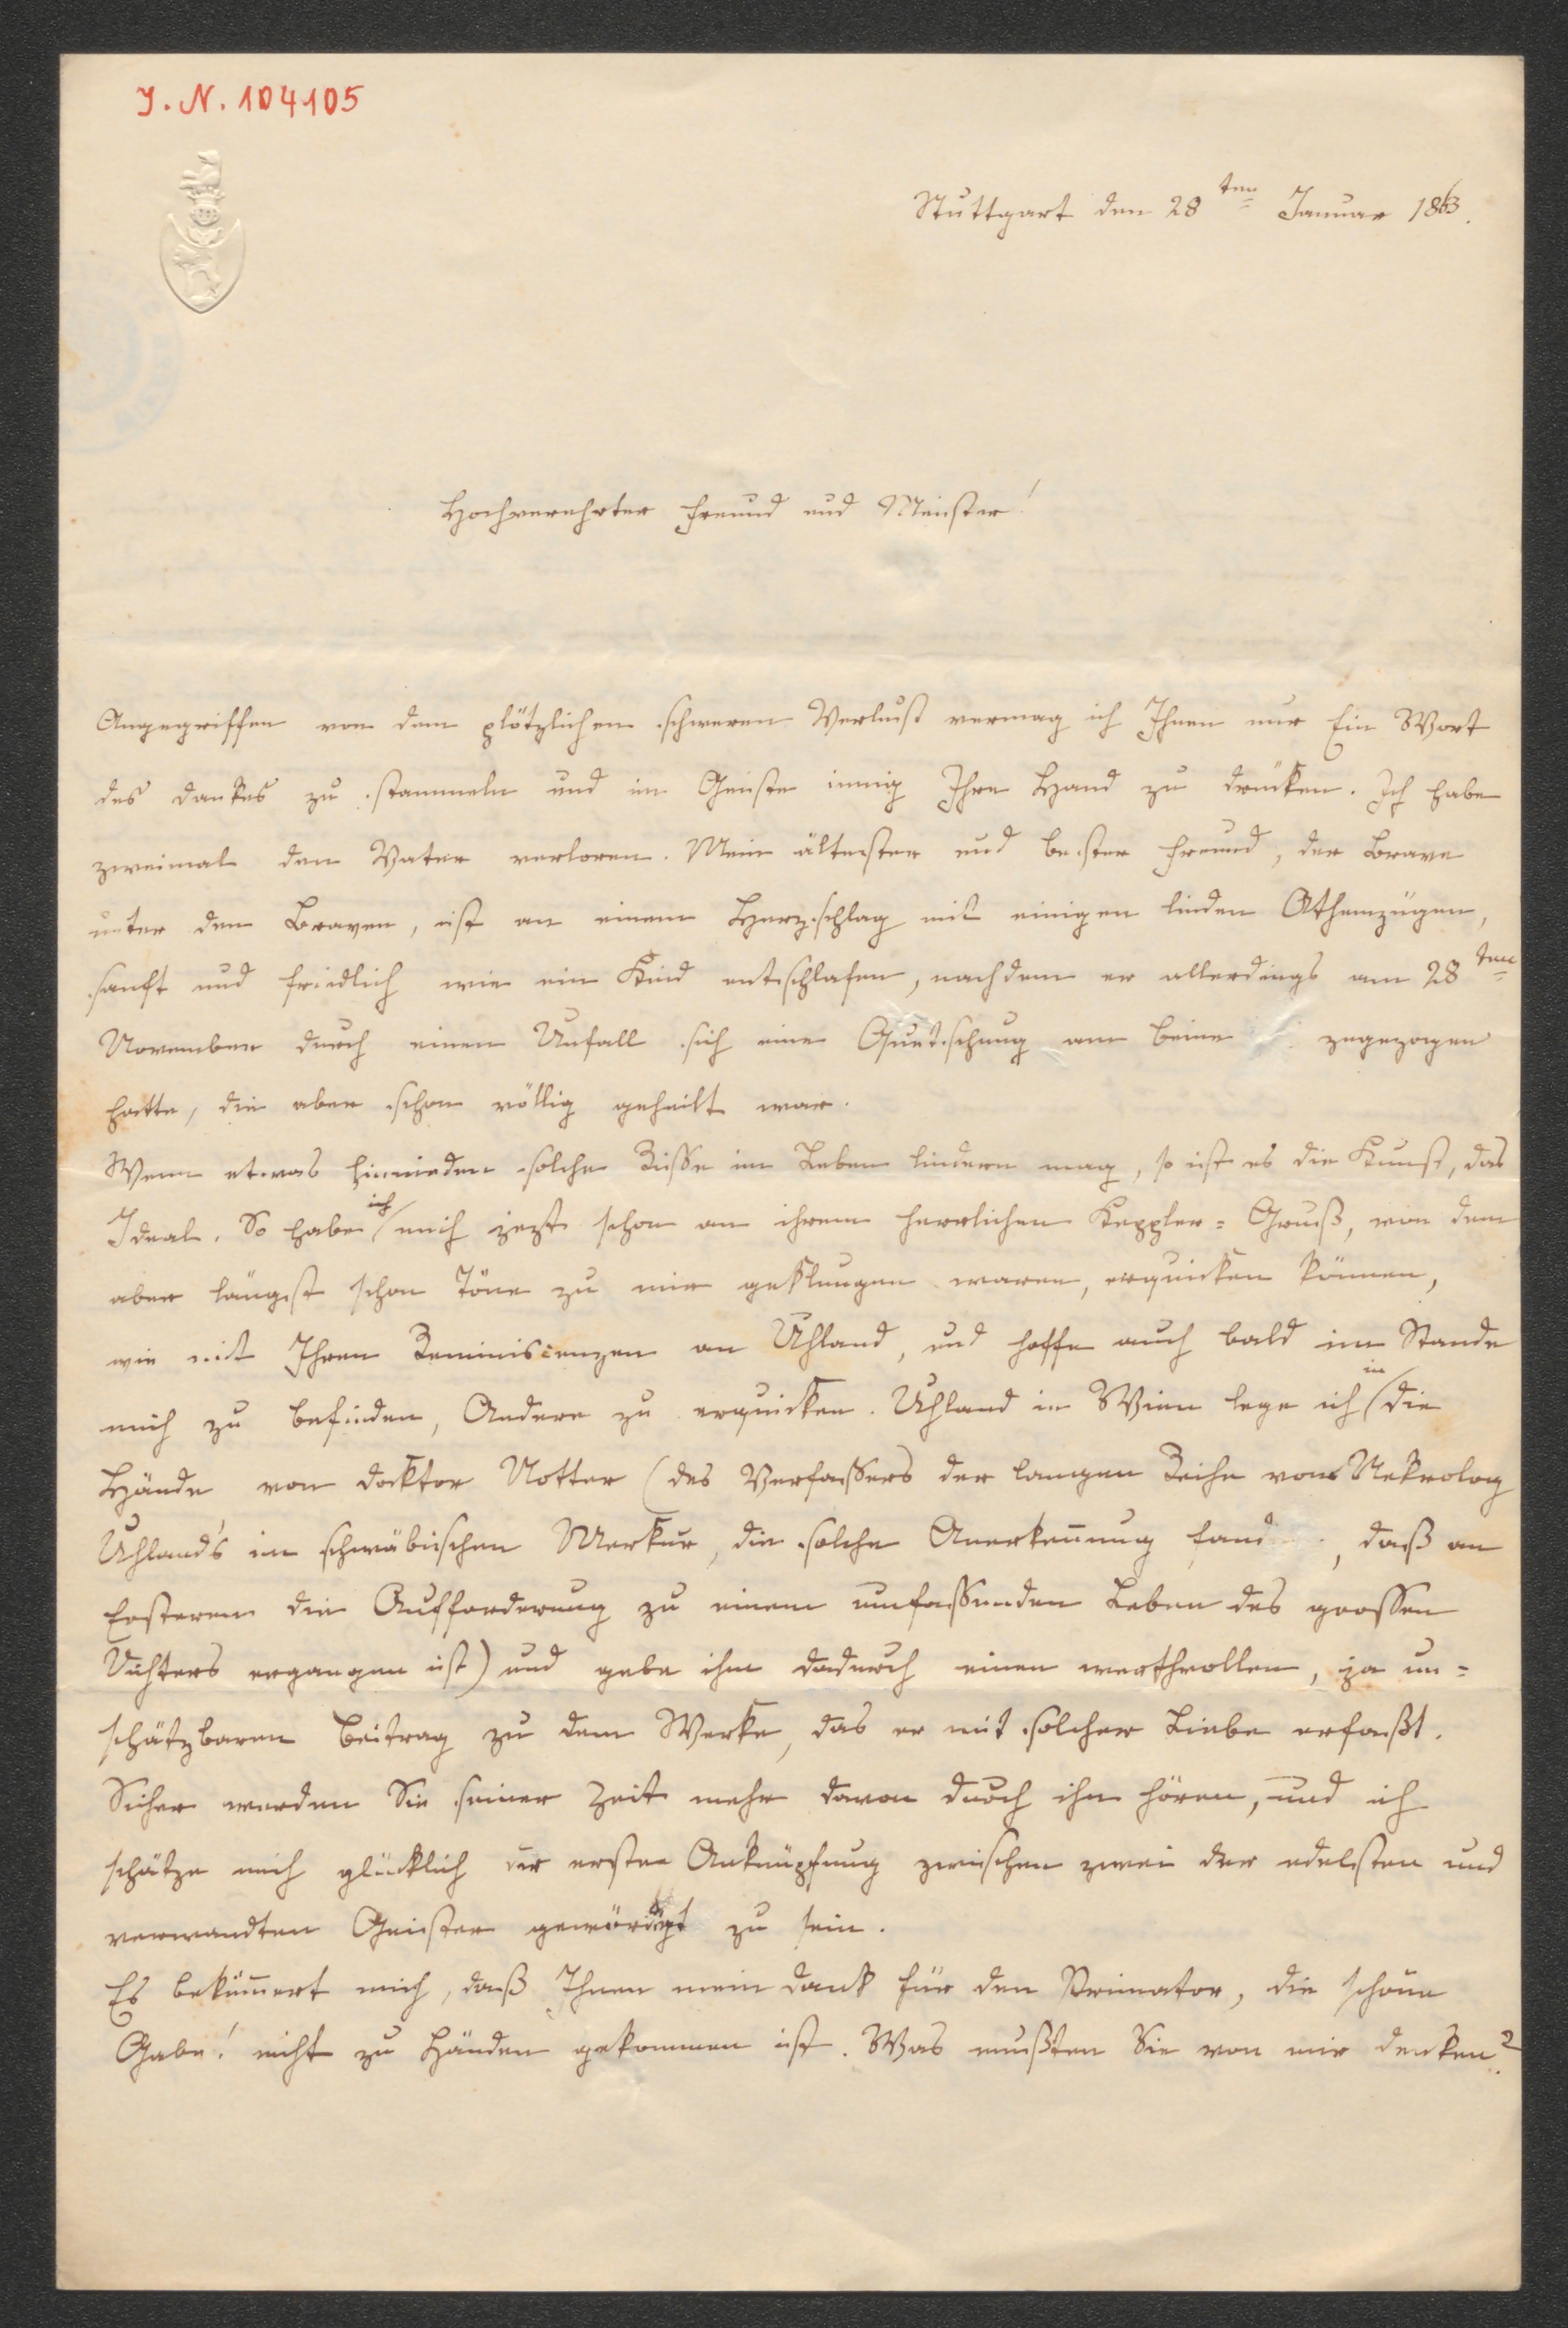 J. N. 104105
Stuttgart den 28ten Januar 1863.
Hochverehrter Freund und Meister!
Angegriffen von dem plötzlichen schweren Verlust vermag ich Ihnen nur Ein Wort
des Dankes zu stammeln und im Geiste innig Ihre Hand zu drücken. Ich habe
zweimal den Vater verloren. Mein ältester und bester Freund, der Brave
unter den Braven, ist an einem Herzschlag mit einigen linden Athemzügen,
sanft und friedlich wie ein Kind entschlafen, nachdem er allerdings am 28ten
November durch einen Unfall sich eine Quetschung am Beine zugezogen
hatte, die aber schon völlig geheilt war.
Wenn etwas hienieden solche Risse im Leben lindern mag, so ist es die Kunst, das
Ideal. So habe ich mich jezt schon an ihrem herrlichen Keppler-Gruß, von dem
aber längst schon Töne zu mir geklungen waren, erquicken können,
wie mit Ihren Reminiscenzen an Uhland, und hoffe auch bald im Stande
mich zu befinden, Andere zu erquicken. Uhland in Wien lege ich in die
Hände von Doktor Notter (des Verfassers der langen Reihe vom Nekrolog
Uhland's im schwäbischen Merkur, die solche Anerkennung fand, daß an
Ersteren die Aufforderung zu einem umfassenden Leben des grossen
Dichters ergangen ist) und gebe ihm dadurch einen werthvollen, ja un-
schätzbaren Beitrag zu dem Werke, das er mit solcher Liebe erfaßt.
Sicher werden Sie seiner Zeit mehr davon durch ihn hören, und ich
schätze mich glücklich der ersten Anknüpfung zwischen zwei der edelsten und
verwandten Geister gewürdigt zu sein.
Es bekümmert mich, daß Ihnen mein Dank für den Primator, die schöne
Gabe! nicht zu Händen gekommen ist. Was mußten Sie von mir denken?